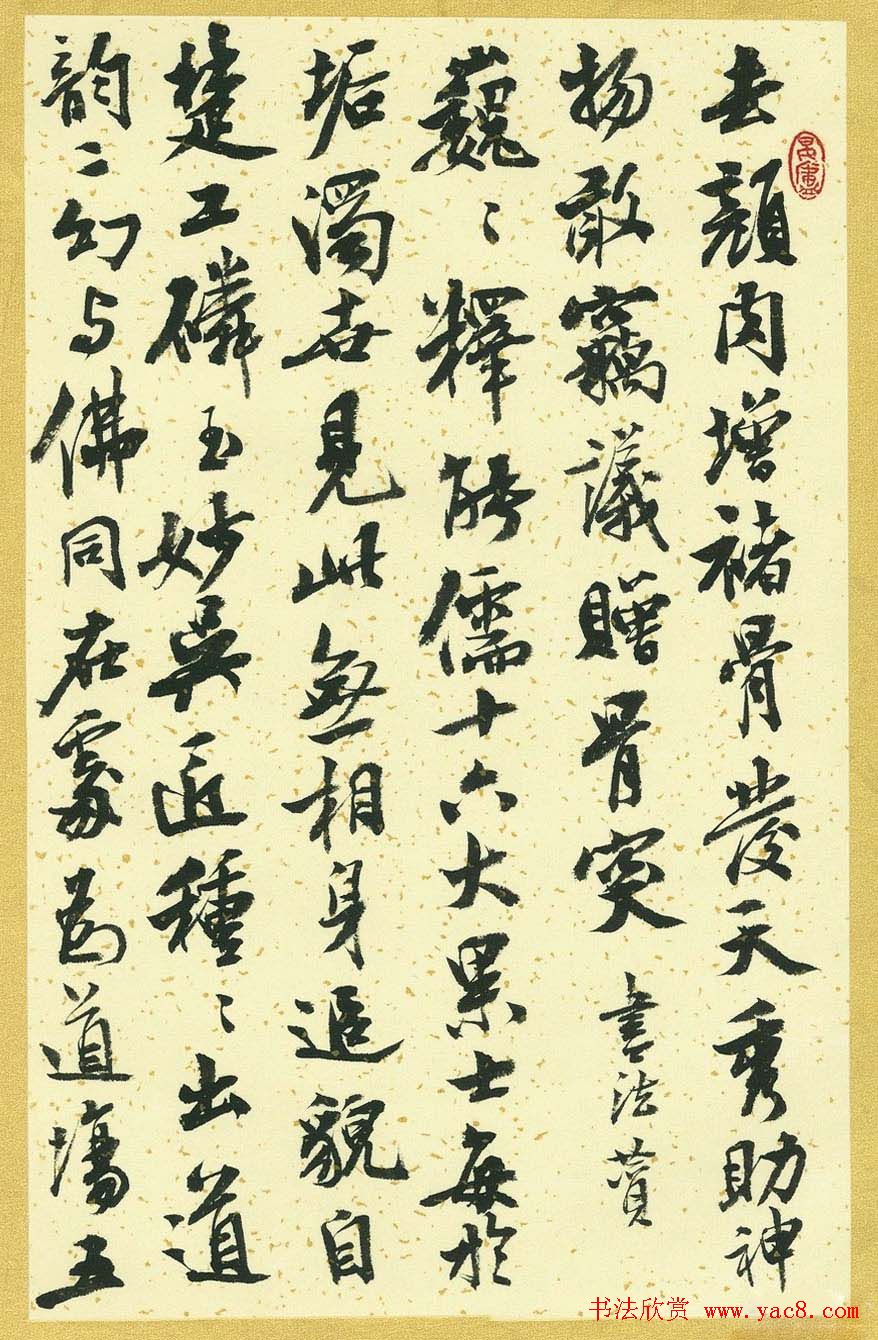 去顏肉增褚骨發天秀助神
物敢竊議贈骨突 書法贊
巍〻釋能儒十六大果士每於
垢濁世見此無相身追貌自
楚工磷玉妙吳匠種〻出道
韵二幻与佛同在處為道場五
书法欣赏 www.yac8.com